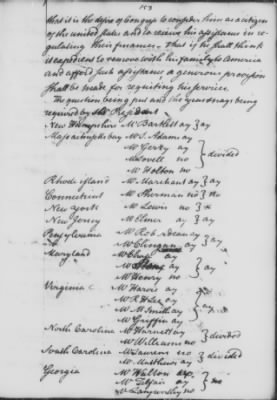 153
that it is the desire of Congress to consider him as a citizen
of the united states and to receive his assistance in re-
gulating their finances. That if he shall think
it expedient to remove with his family to America
and afford such assistance a generous provision
shall be made for requiting his service
The question being put and the yeas & nays being
required by the President
New Hampshire Mr Bartlett ay } ay
Massachusetts bay Mr S. Adams ay
Mr Gerry ay
Mr Lovell no } divided
Mr Holton no
Rhode island Mr Marchant ay } ay
Connecticut Mr Sherman no } no
New york Mr Lewis no }
New Jersey Mr Elmer ay } ay
Pensylvania Mr Roberdeau ay
Mr Clingan ay } ay
Maryland Mr Chase ay
Mr ay } ay
Mr Henry no
Virginia Mr Harvie ay
Mr R H Lee ay
Mr M Smith ay } ay
Mr Griffin ay
North Carolina Mr Harnett ay
Mr Williams no } divided
South Carolina Mr Laurens no
Mr Mathews ay } divided
Georgia Mr Walton no
Mr Telfair ay } no
Mr Langworthy no